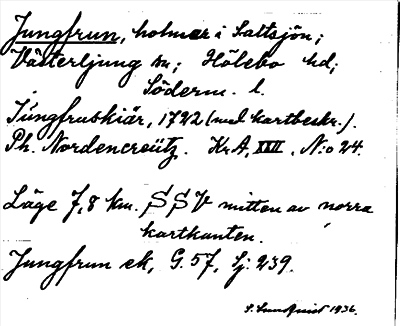 Jungfrun, holmar i Saltsjön;
Västerljung sn; Hölebo hd;
Söderm. l.
Jungfruskiär, 1722 (med kartbeskr.).
Ph. Nordencreütz. Kr.A, XXII, N:o 24.
Läge 7,8 km. SSV mitten av norra
kartkanten.
Jungfrun ek, G. 57, Sj. 239.
S. Lundqvist 1936.